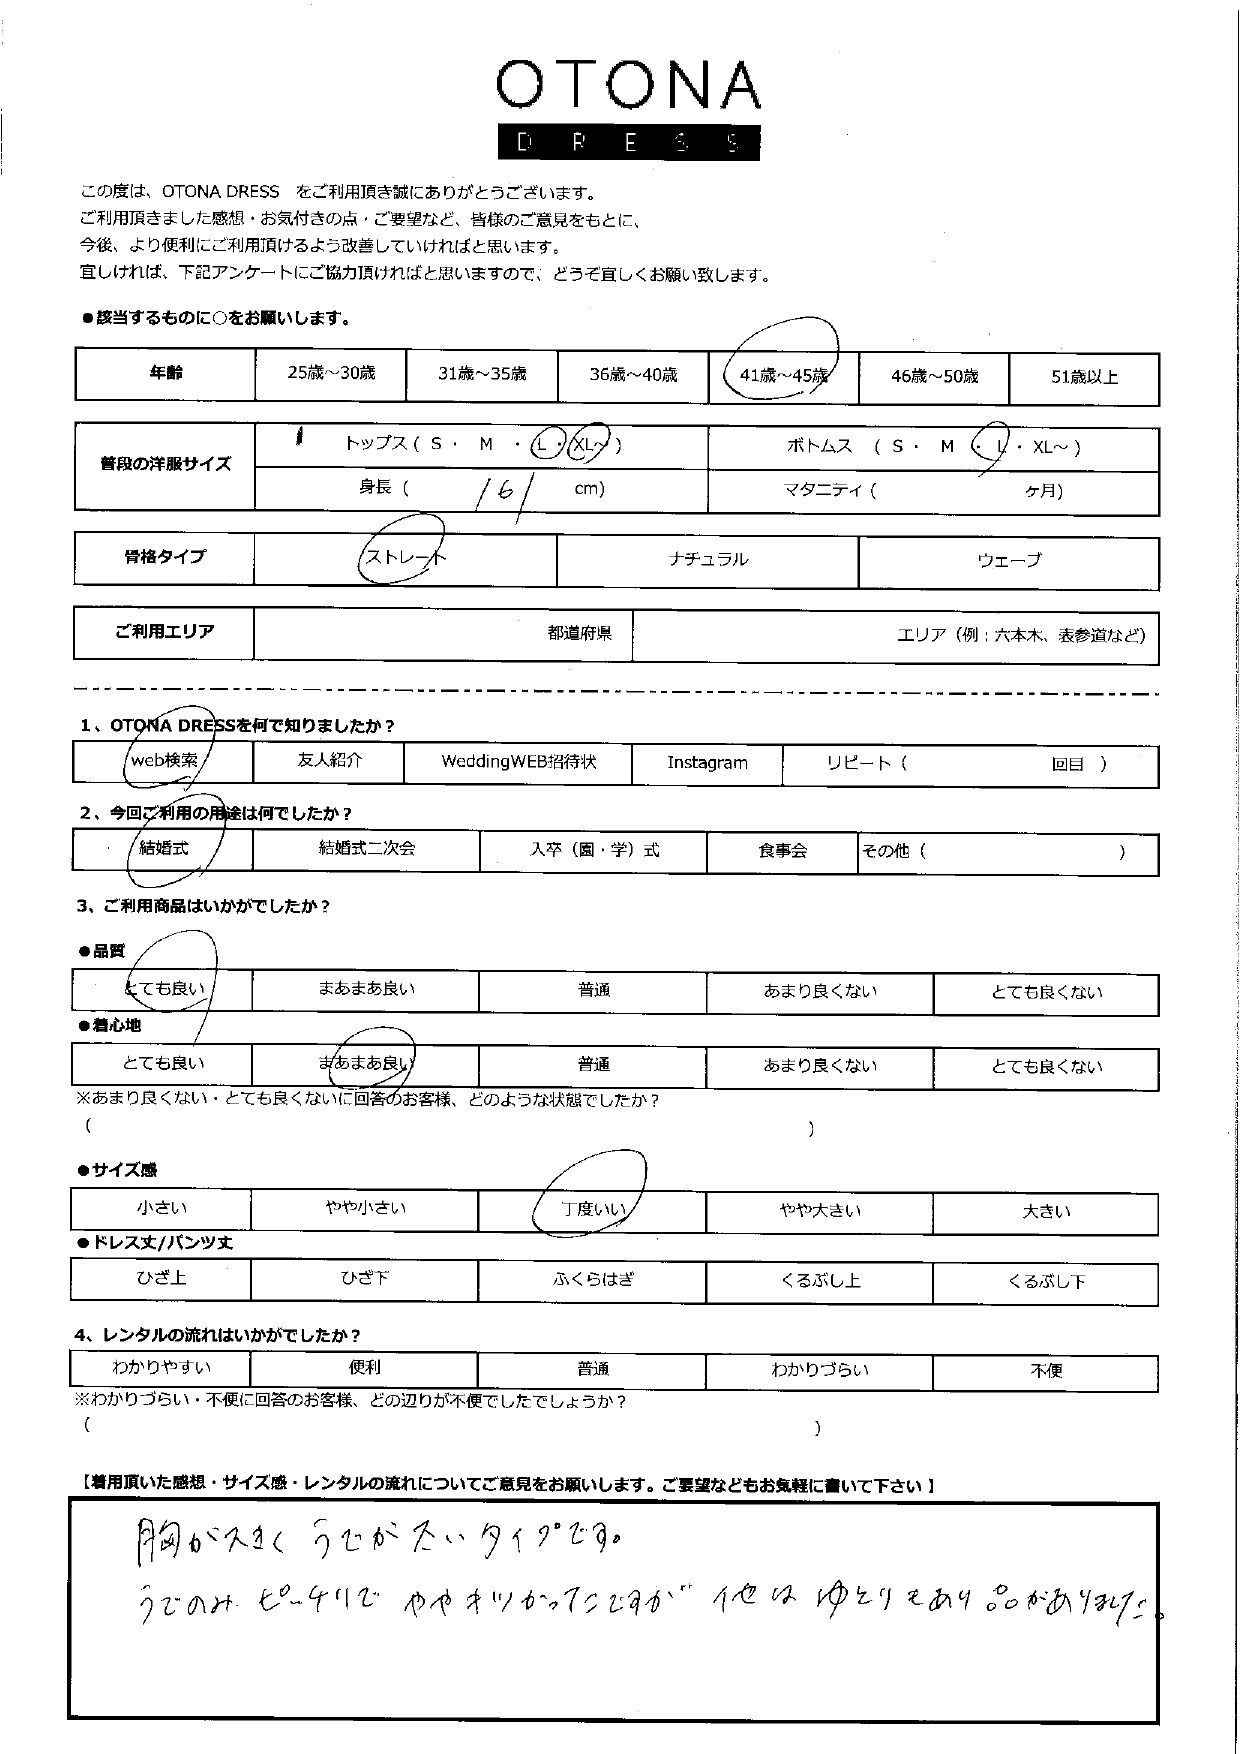 OTONA
DRESS
この度は、OTONA DRESS をご利用頂き誠にありがとうございます。
ご利用頂きました感想・お気付きの点・ご要望など、皆様のご意見をもとに、
今後、より便利にご利用頂けるよう改善していければと思います。
宜しければ、下記アンケートにご協力頂ければと思いますので、どうぞ宜しくお願い致します。
●該当するものに○をお願いします。
年齢 25歳～30歳 31歳～35歳 36歳～40歳 41歳～45歳 46歳～50歳 51歳以上
普段の洋服サイズ トップス ( S ・ M ・ L ・ XL～ ) ボトムス ( S ・ M ・ L ・ XL～ )
身長 ( 161 cm) マタニティ ( ケ月)
骨格タイプ ストレート ナチュラル ウェーブ
ご利用エリア 都道府県 エリア（例；六本木、表参道など）
1、OTONA DRESSを何で知りましたか？
web検索 友人紹介 WeddingWEB招待状 Instagram リピート ( 回目 )
2、今回ご利用の用途は何でしたか？
結婚式 結婚式二次会 入卒（園・学）式 食事会 その他 ( )
3、ご利用商品はいかがでしたか？
●品質
とても良い まあまあ良い 普通 あまり良くない とても良くない
●着心地
とても良い まあまあ良い 普通 あまり良くない とても良くない
※あまり良くない・とても良くないに回答のお客様、どのような状態でしたか？
( )
●サイズ感
小さい やや小さい 丁度いい やや大きい 大きい
●ドレス丈/パンツ丈
ひざ上 ひざ下 ふくらはぎ くるぶし上 くるぶし下
4、レンタルの流れはいかがでしたか？
わかりやすい 便利 普通 わかりづらい 不便
※わかりづらい・不便に回答のお客様、どの辺りが不便でしたでしょうか？
( )
【着用頂いた感想・サイズ感・レンタルの流れについてご意見をお願いします。ご要望などもお気軽に書いて下さい】
胸が大きく うでが太いタイプです。
うでのみ ピーチリで ややキツかったですが 他は ゆとりもあり 品がありました。